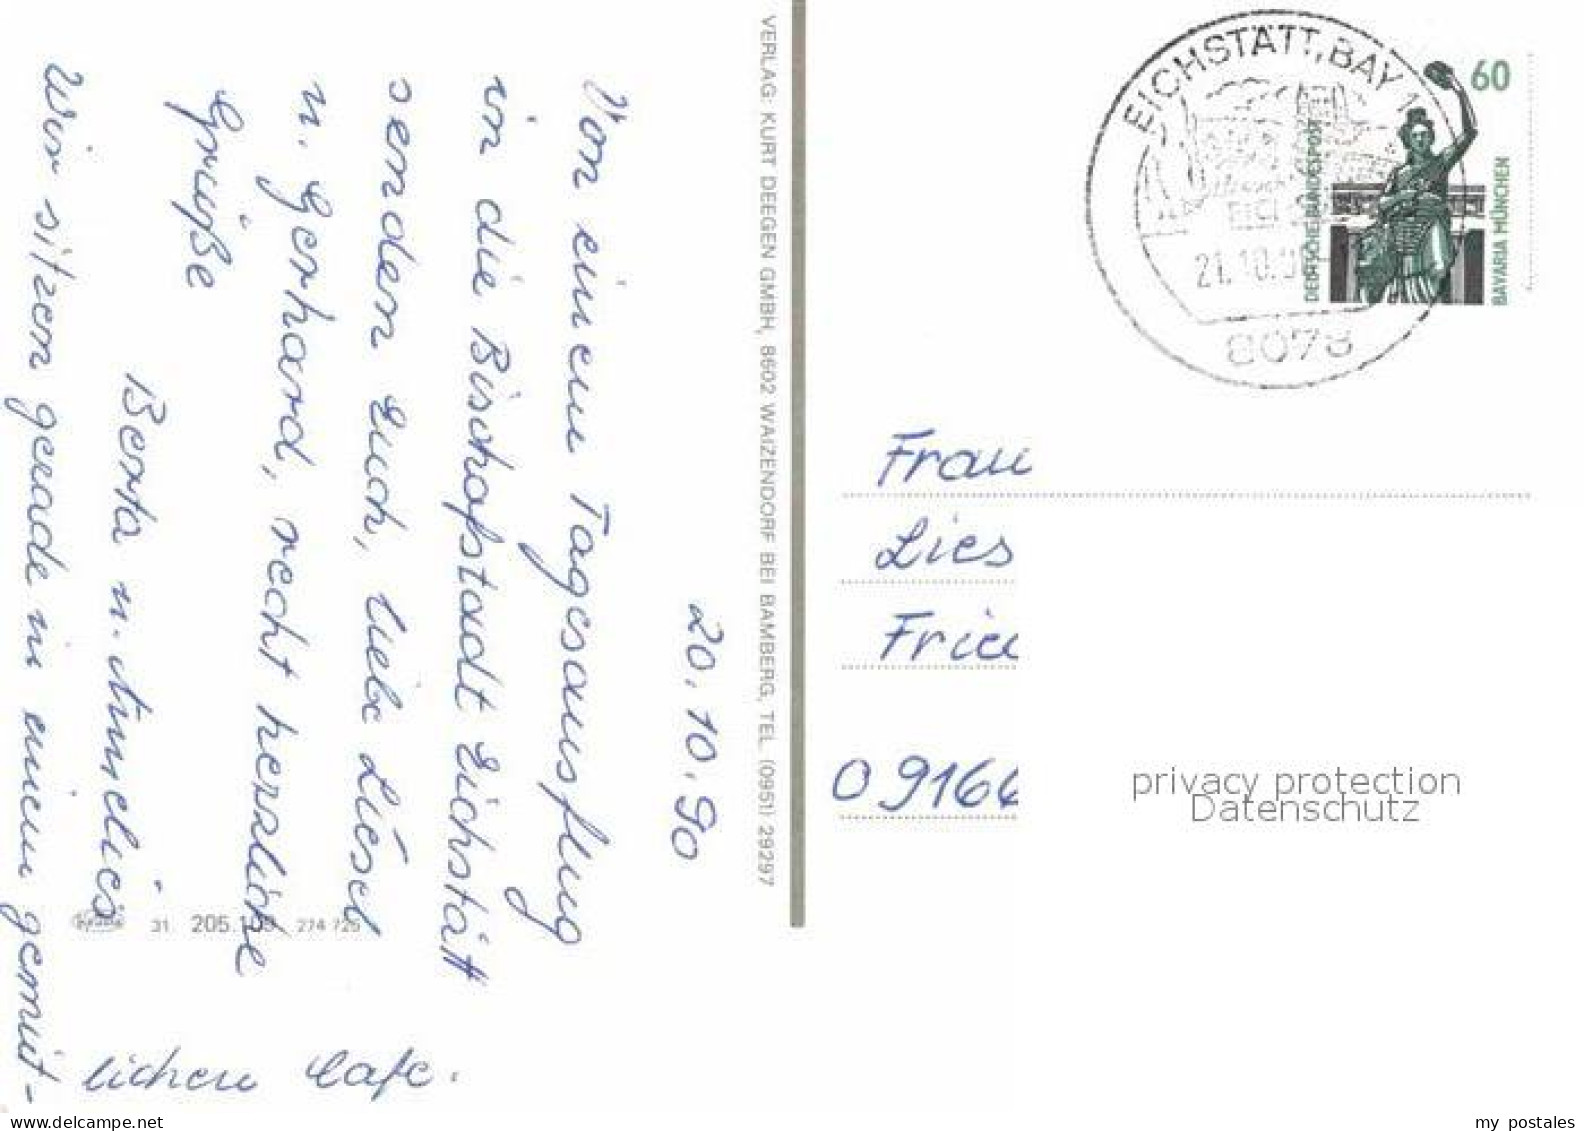 20.10.90
Von einem Tagesausflug
in die Bischofsstadt Eichstätt
senden Euch, liebe Liesel
u. Gerhard, recht herzliche
Grüße
Berta u. Annelies
Wir sitzen gerade in einem gemüt-
lichen Cafe.
VERLAG: KURT DEEGEN GMBH, 8602 WAIZENDORF BEI BAMBERG, TEL. (0951) 29297
31 205.109 274 725
EICHSTÄTT, BAY 1
21.10.
8078
60
DEUTSCHE BUNDESPOST
BAVARIA MÜNCHEN
Frau
Lies
Frie
O 9166
privacy protection
Datenschutz
www.delcampe.net
my postales